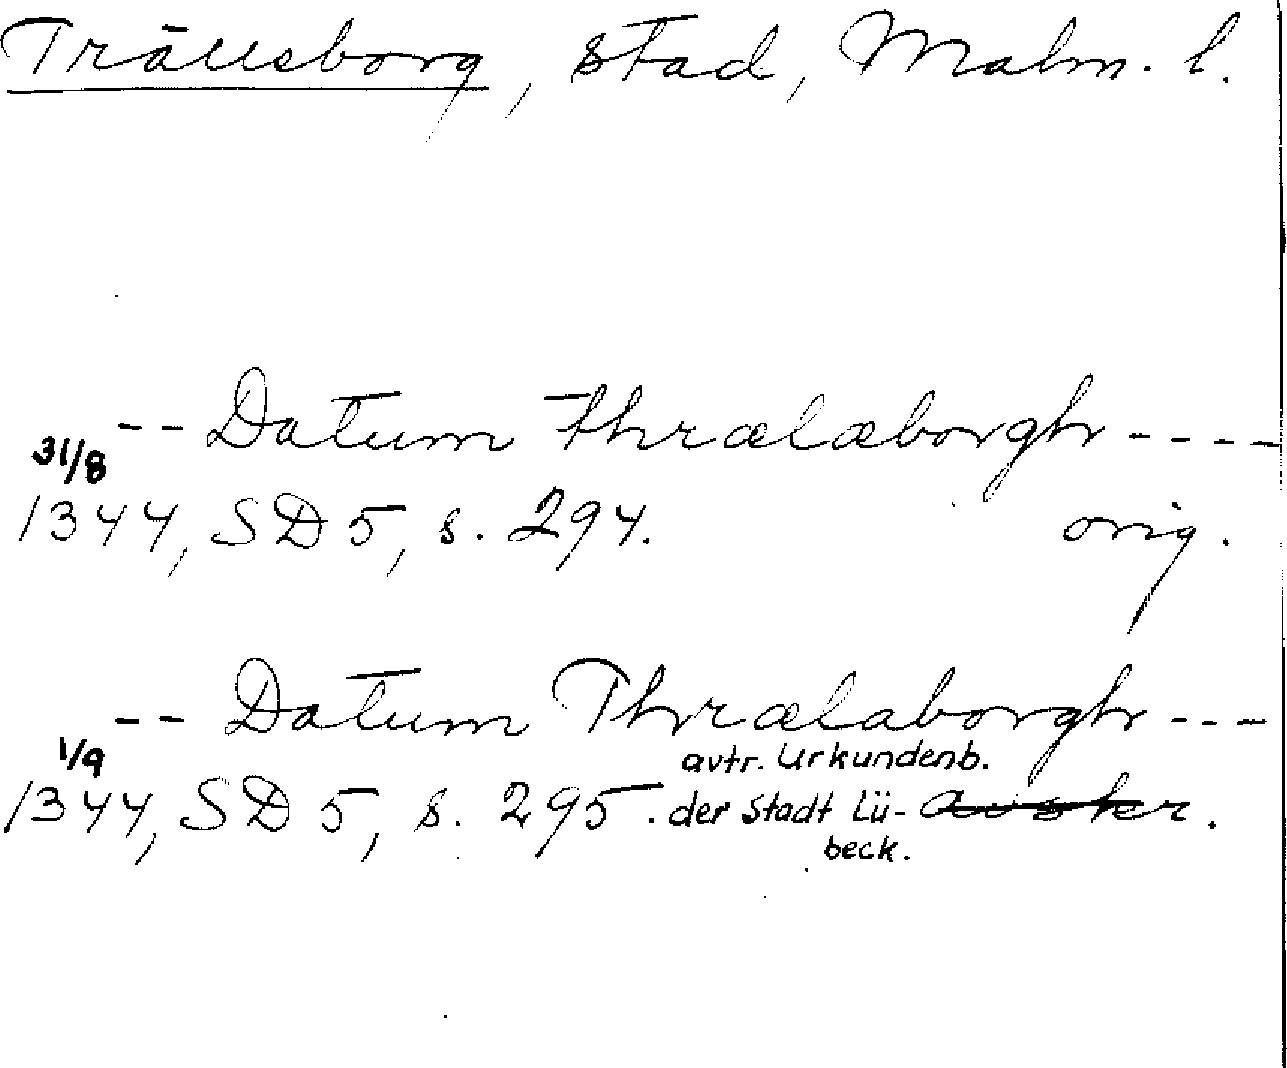 Trälleborg, stad, Malm. l.
-- Datum Thrælæborgh ----
31/8
1344, SD 5, s. 294. orig.
-- Datum Thrælaborgh ---
1/9 avtr. Urkundenb.
1344, SD 5, s. 295. der Stadt Lü-
beck.